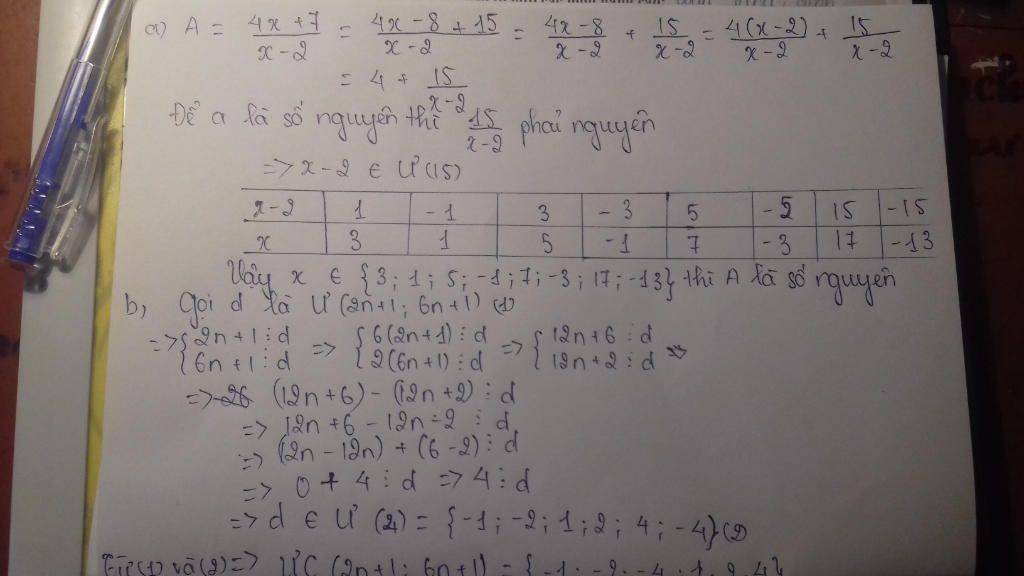 a) A = \frac{4x+7}{x-2} = \frac{4x-8+15}{x-2} = \frac{4x-8}{x-2} + \frac{15}{x-2} = \frac{4(x-2)}{x-2} + \frac{15}{x-2}
= 4 + \frac{15}{x-2}
Để a là số nguyên thì \frac{15}{x-2} phải nguyên
=> x-2 ∈ Ư(15)
x-2 | 1 | -1 | 3 | -3 | 5 | -5 | 15 | -15
x | 3 | 1 | 5 | -1 | 7 | -3 | 17 | -13
Vậy x ∈ {3; 1; 5; -1; 7; -3; 17; -13} thì A là số nguyên
b, Gọi d là Ư (2n+1; 6n+1) (1)
=> { 2n+1 ⋮ d => { 6(2n+1) ⋮ d => { 12n+6 ⋮ d
6n+1 ⋮ d 2(6n+1) ⋮ d 12n+2 ⋮ d
=> (12n+6) - (12n+2) ⋮ d
=> 12n+6 - 12n-2 ⋮ d
=> (12n - 12n) + (6-2) ⋮ d
=> 0 + 4 ⋮ d => 4 ⋮ d
=> d ∈ Ư (4) = {-1; -2; 1; 2; 4; -4} (2)
Từ (1) và (2) => ƯC (2n+1; 6n+1) = {-1; -2; -4; 1; 2; 4}